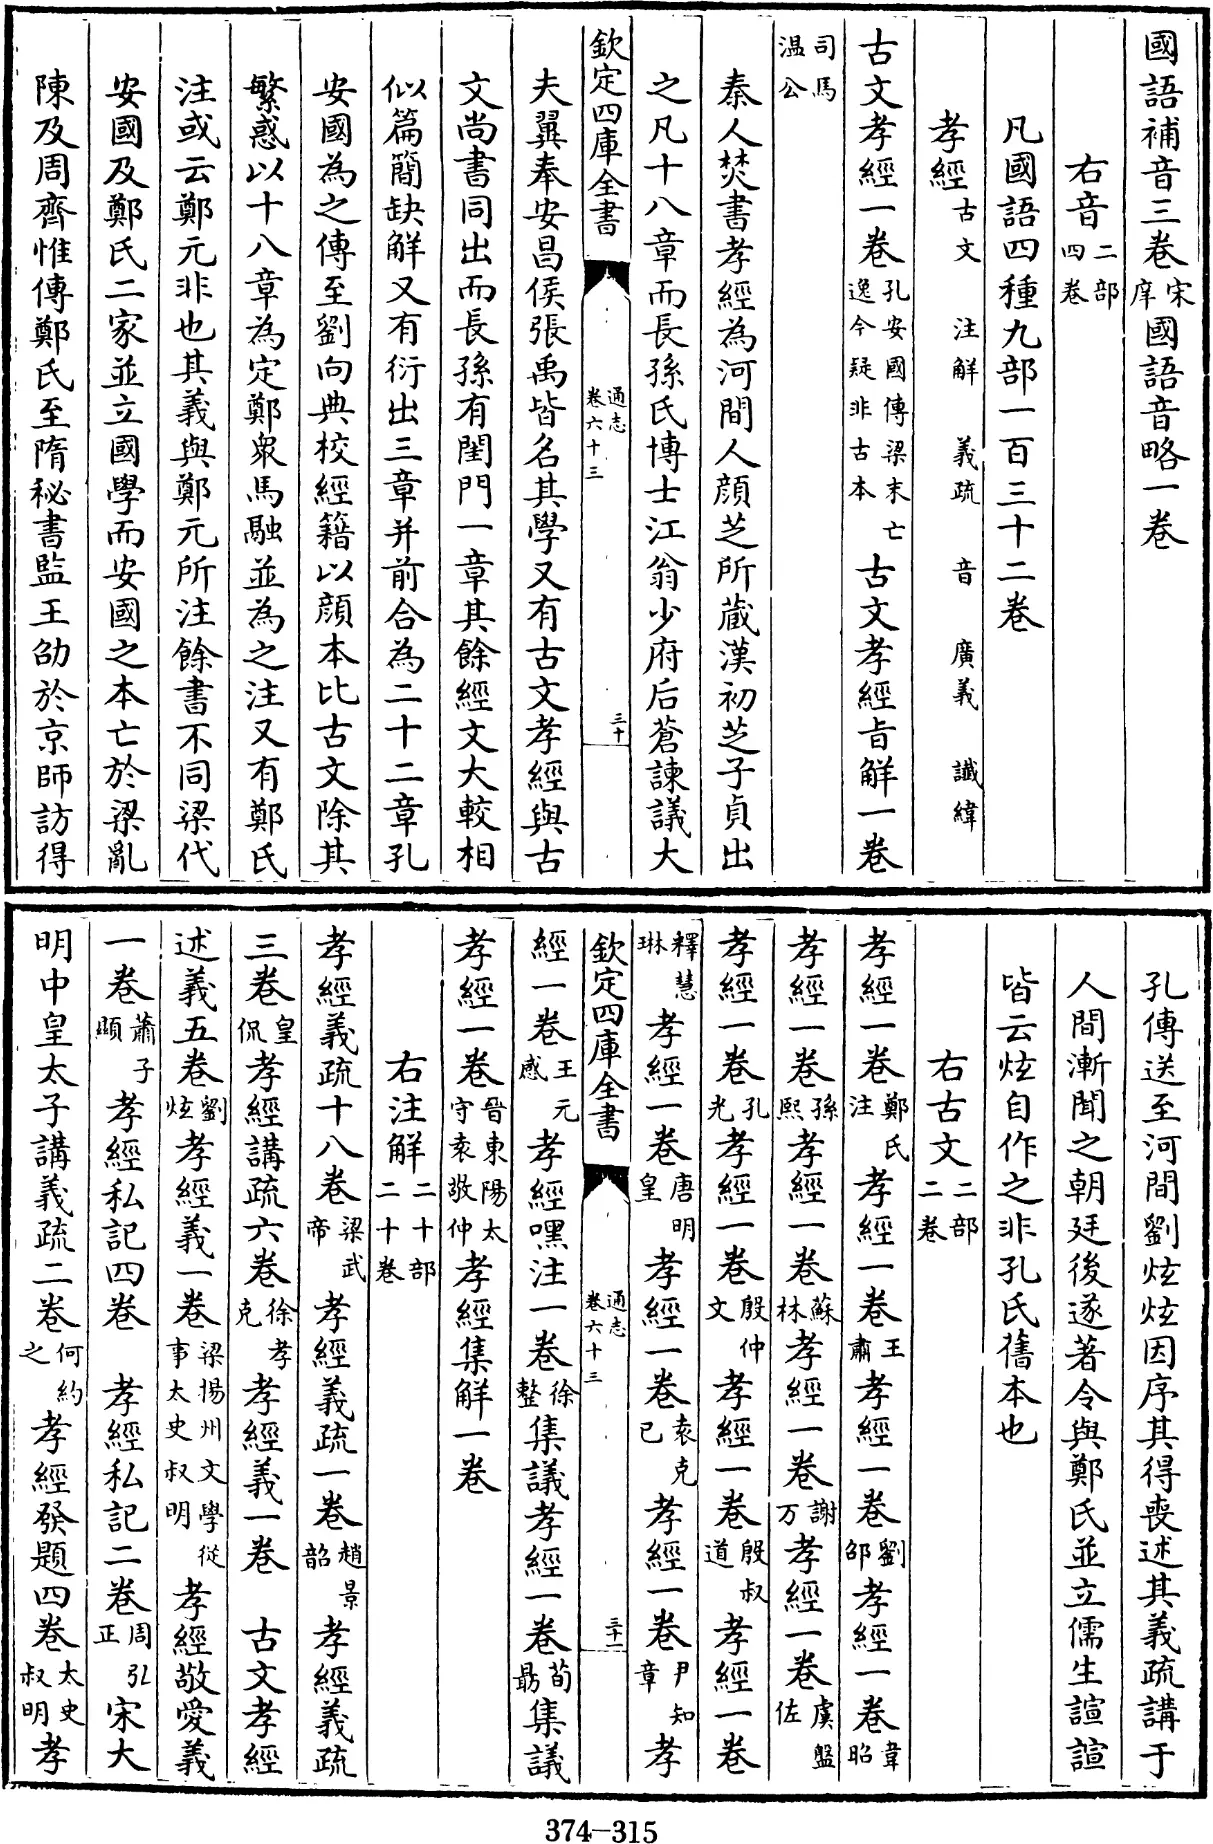 國語補音三卷宋庠國語音略一卷
右音二部四卷
凡國語四種九部一百三十二卷
孝經古文 注解 義疏 音 廣義 讖緯
古文孝經一卷孔安國傳梁末亡逸今疑非古本古文孝經旨解一卷
司馬温公
秦人焚書孝經為河間人顔芝所藏漢初芝子貞出
之凡十八章而長孫氏博士江翁少府后蒼諫議大
欽定四庫全書 通志卷六十三 三十
夫翼奉安昌侯張禹皆名其學又有古文孝經與古
文尚書同出而長孫有閨門一章其餘經文大較相
似篇簡缺解又有衍出三章并前合為二十二章孔
安國為之傳至劉向典校經籍以顔本比古文除其
繁惑以十八章為定鄭衆馬融並為之注又有鄭氏
注或云鄭元非也其義與鄭元所注餘書不同梁代
安國及鄭氏二家並立國學而安國之本亡於梁亂
陳及周齊惟傳鄭氏至隋秘書監王劭於京師訪得
孔傳送至河間劉炫炫因序其得喪述其義疏講于
人間漸聞之朝廷後遂著令與鄭氏並立儒生諠諠
皆云炫自作之非孔氏舊本也
右古文二部二卷
孝經一卷鄭氏注孝經一卷王肅孝經一卷劉邵孝經一卷韋昭
孝經一卷孫熙孝經一卷蘇林孝經一卷謝万孝經一卷虞盤佐
孝經一卷孔光孝經一卷殷仲文孝經一卷殷叔道孝經一卷
釋慧琳孝經一卷唐明皇孝經一卷袁克已孝經一卷尹知章孝
欽定四庫全書 通志卷六十三 三十一
經一卷王元感孝經嘿注一卷徐整集議孝經一卷荀勗集議
孝經一卷晉東陽太守袁敬仲孝經集解一卷
右注解二十部二十卷
孝經義疏十八卷梁武帝孝經義疏一卷趙景韶孝經義疏
三卷皇侃孝經講疏六卷徐孝克孝經義一卷 古文孝經
述義五卷劉炫孝經義一卷梁揚州文學從事太史叔明孝經敬愛義
一卷蕭子顯孝經私記四卷 孝經私記二卷周弘正宋大
明中皇太子講義疏二卷何約之孝經發題四卷太史叔明孝
374-315